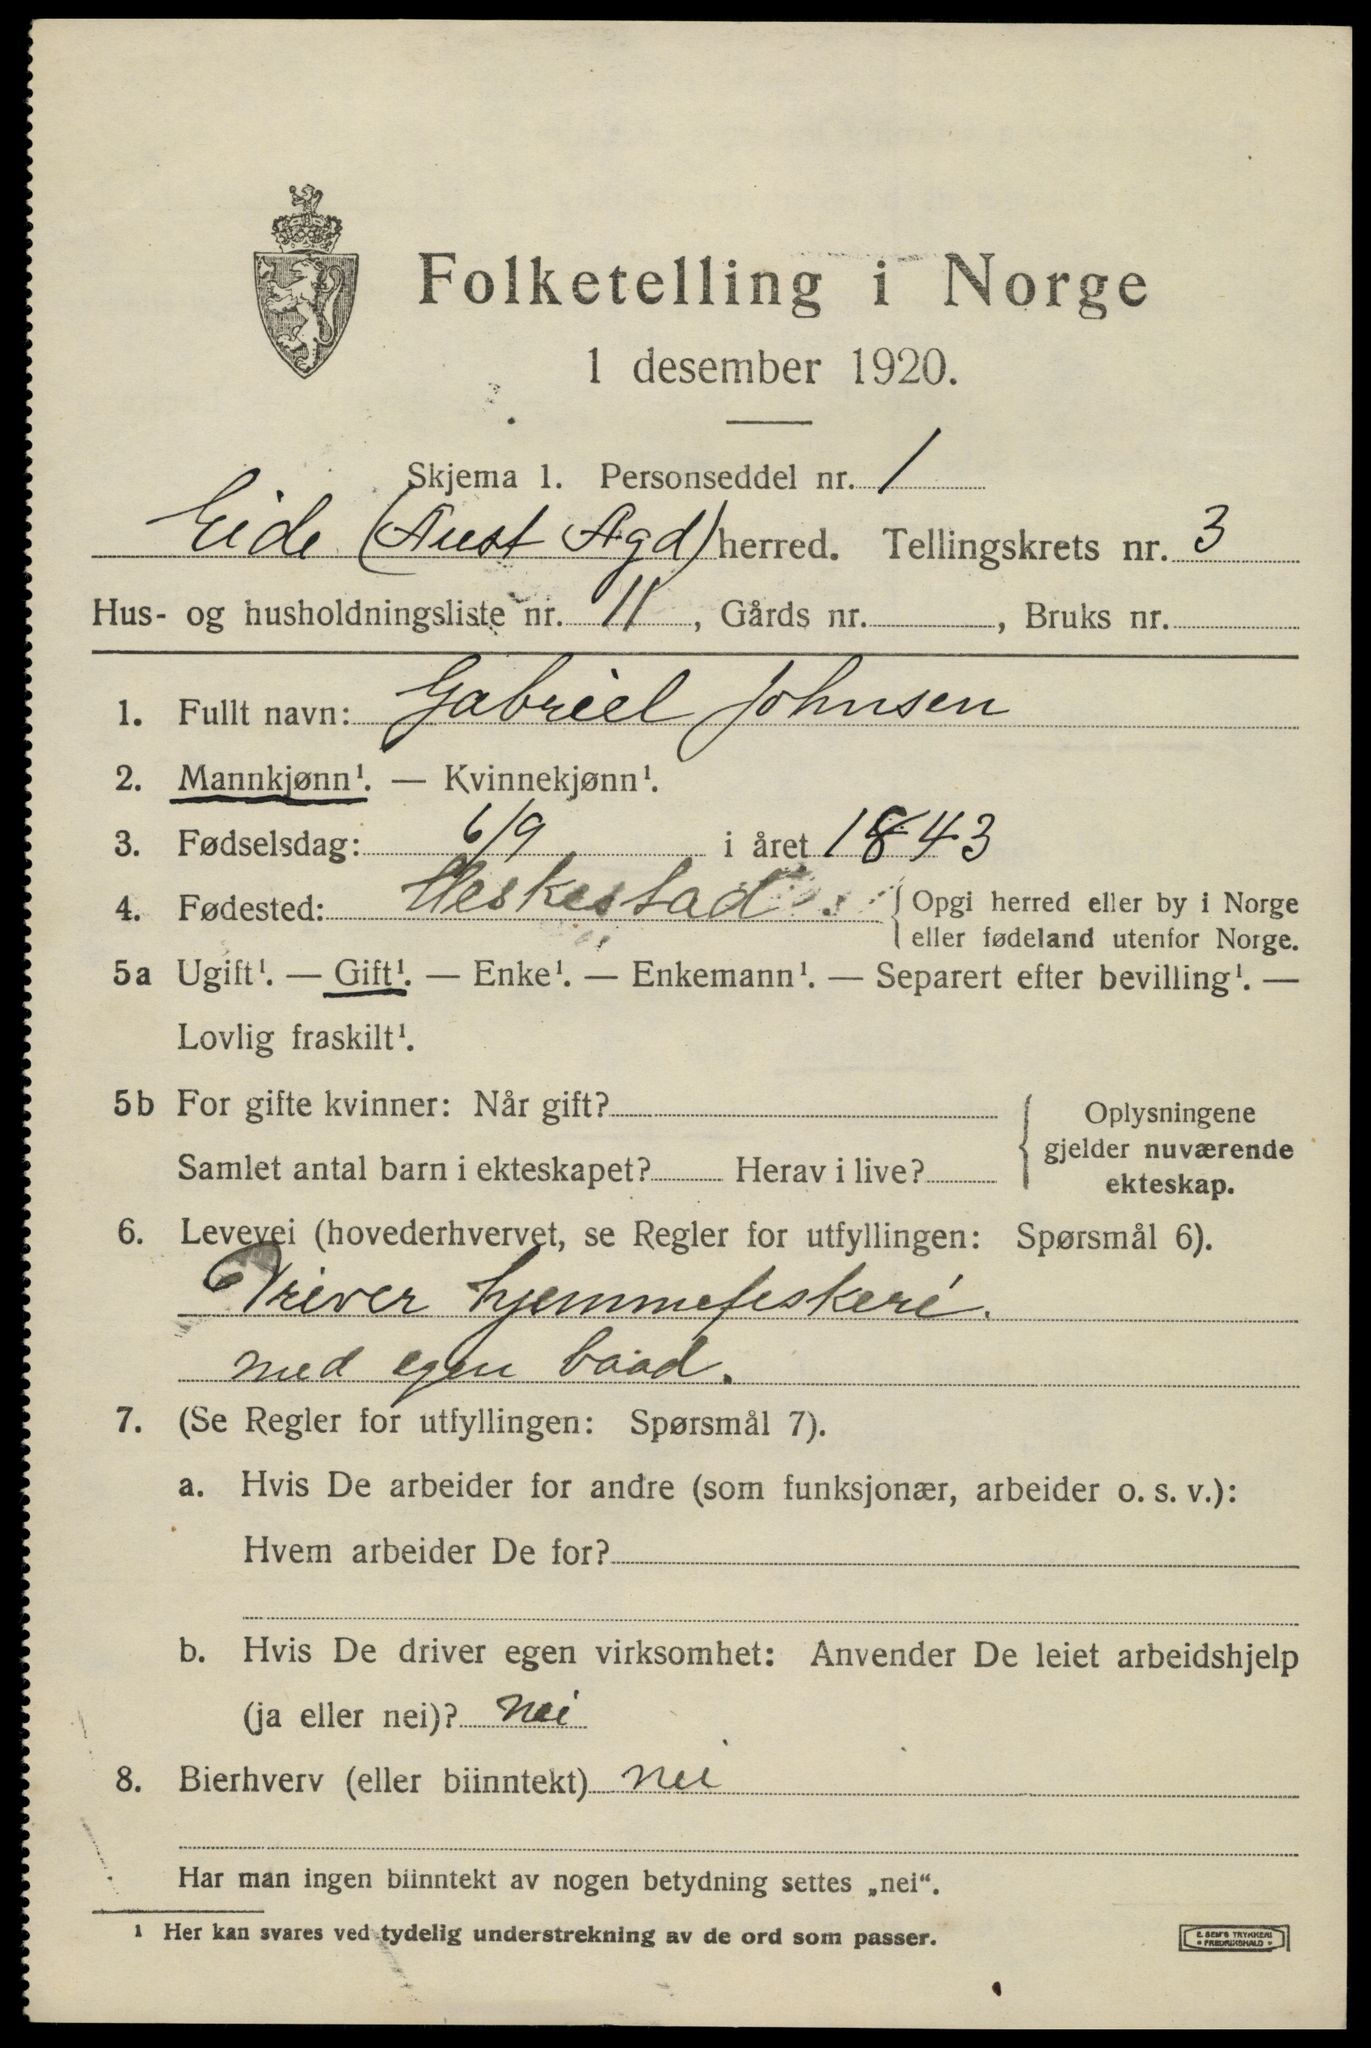 Folketelling i Norge
1 desember 1920.
Skjema 1. Personseddel nr. 1
Eide (Aust Agd) herred. Tellingskrets nr. 3
Hus- og husholdningsliste nr. 11, Gårds nr. , Bruks nr.
1. Fullt navn: Gabriel Johnsen
2. Mannkjønn¹. — Kvinnekjønn¹.
3. Fødselsdag: 6/9 i året 1843
4. Fødested: Heskestad. { Opgi herred eller by i Norge
eller fødeland utenfor Norge.
5a Ugift¹. — Gift¹. — Enke¹. — Enkemann¹. — Separert efter bevilling¹. —
Lovlig fraskilt¹.
5b For gifte kvinner: Når gift?
Samlet antal barn i ekteskapet? Herav i live?
{ Oplysningene
gjelder nuværende
ekteskap.
6. Levevei (hovederhvervet, se Regler for utfyllingen: Spørsmål 6).
Driver hjemmefiskeri.
med egen baad.
7. (Se Regler for utfyllingen: Spørsmål 7).
a. Hvis De arbeider for andre (som funksjonær, arbeider o. s. v.):
Hvem arbeider De for?
b. Hvis De driver egen virksomhet: Anvender De leiet arbeidshjelp
(ja eller nei)? nei
8. Bierhverv (eller biinntekt) nei
Har man ingen biinntekt av nogen betydning settes „nei“.
¹ Her kan svares ved tydelig understrekning av de ord som passer.
E. SEM'S TRYKKERI
* FREDRIKSHALD *